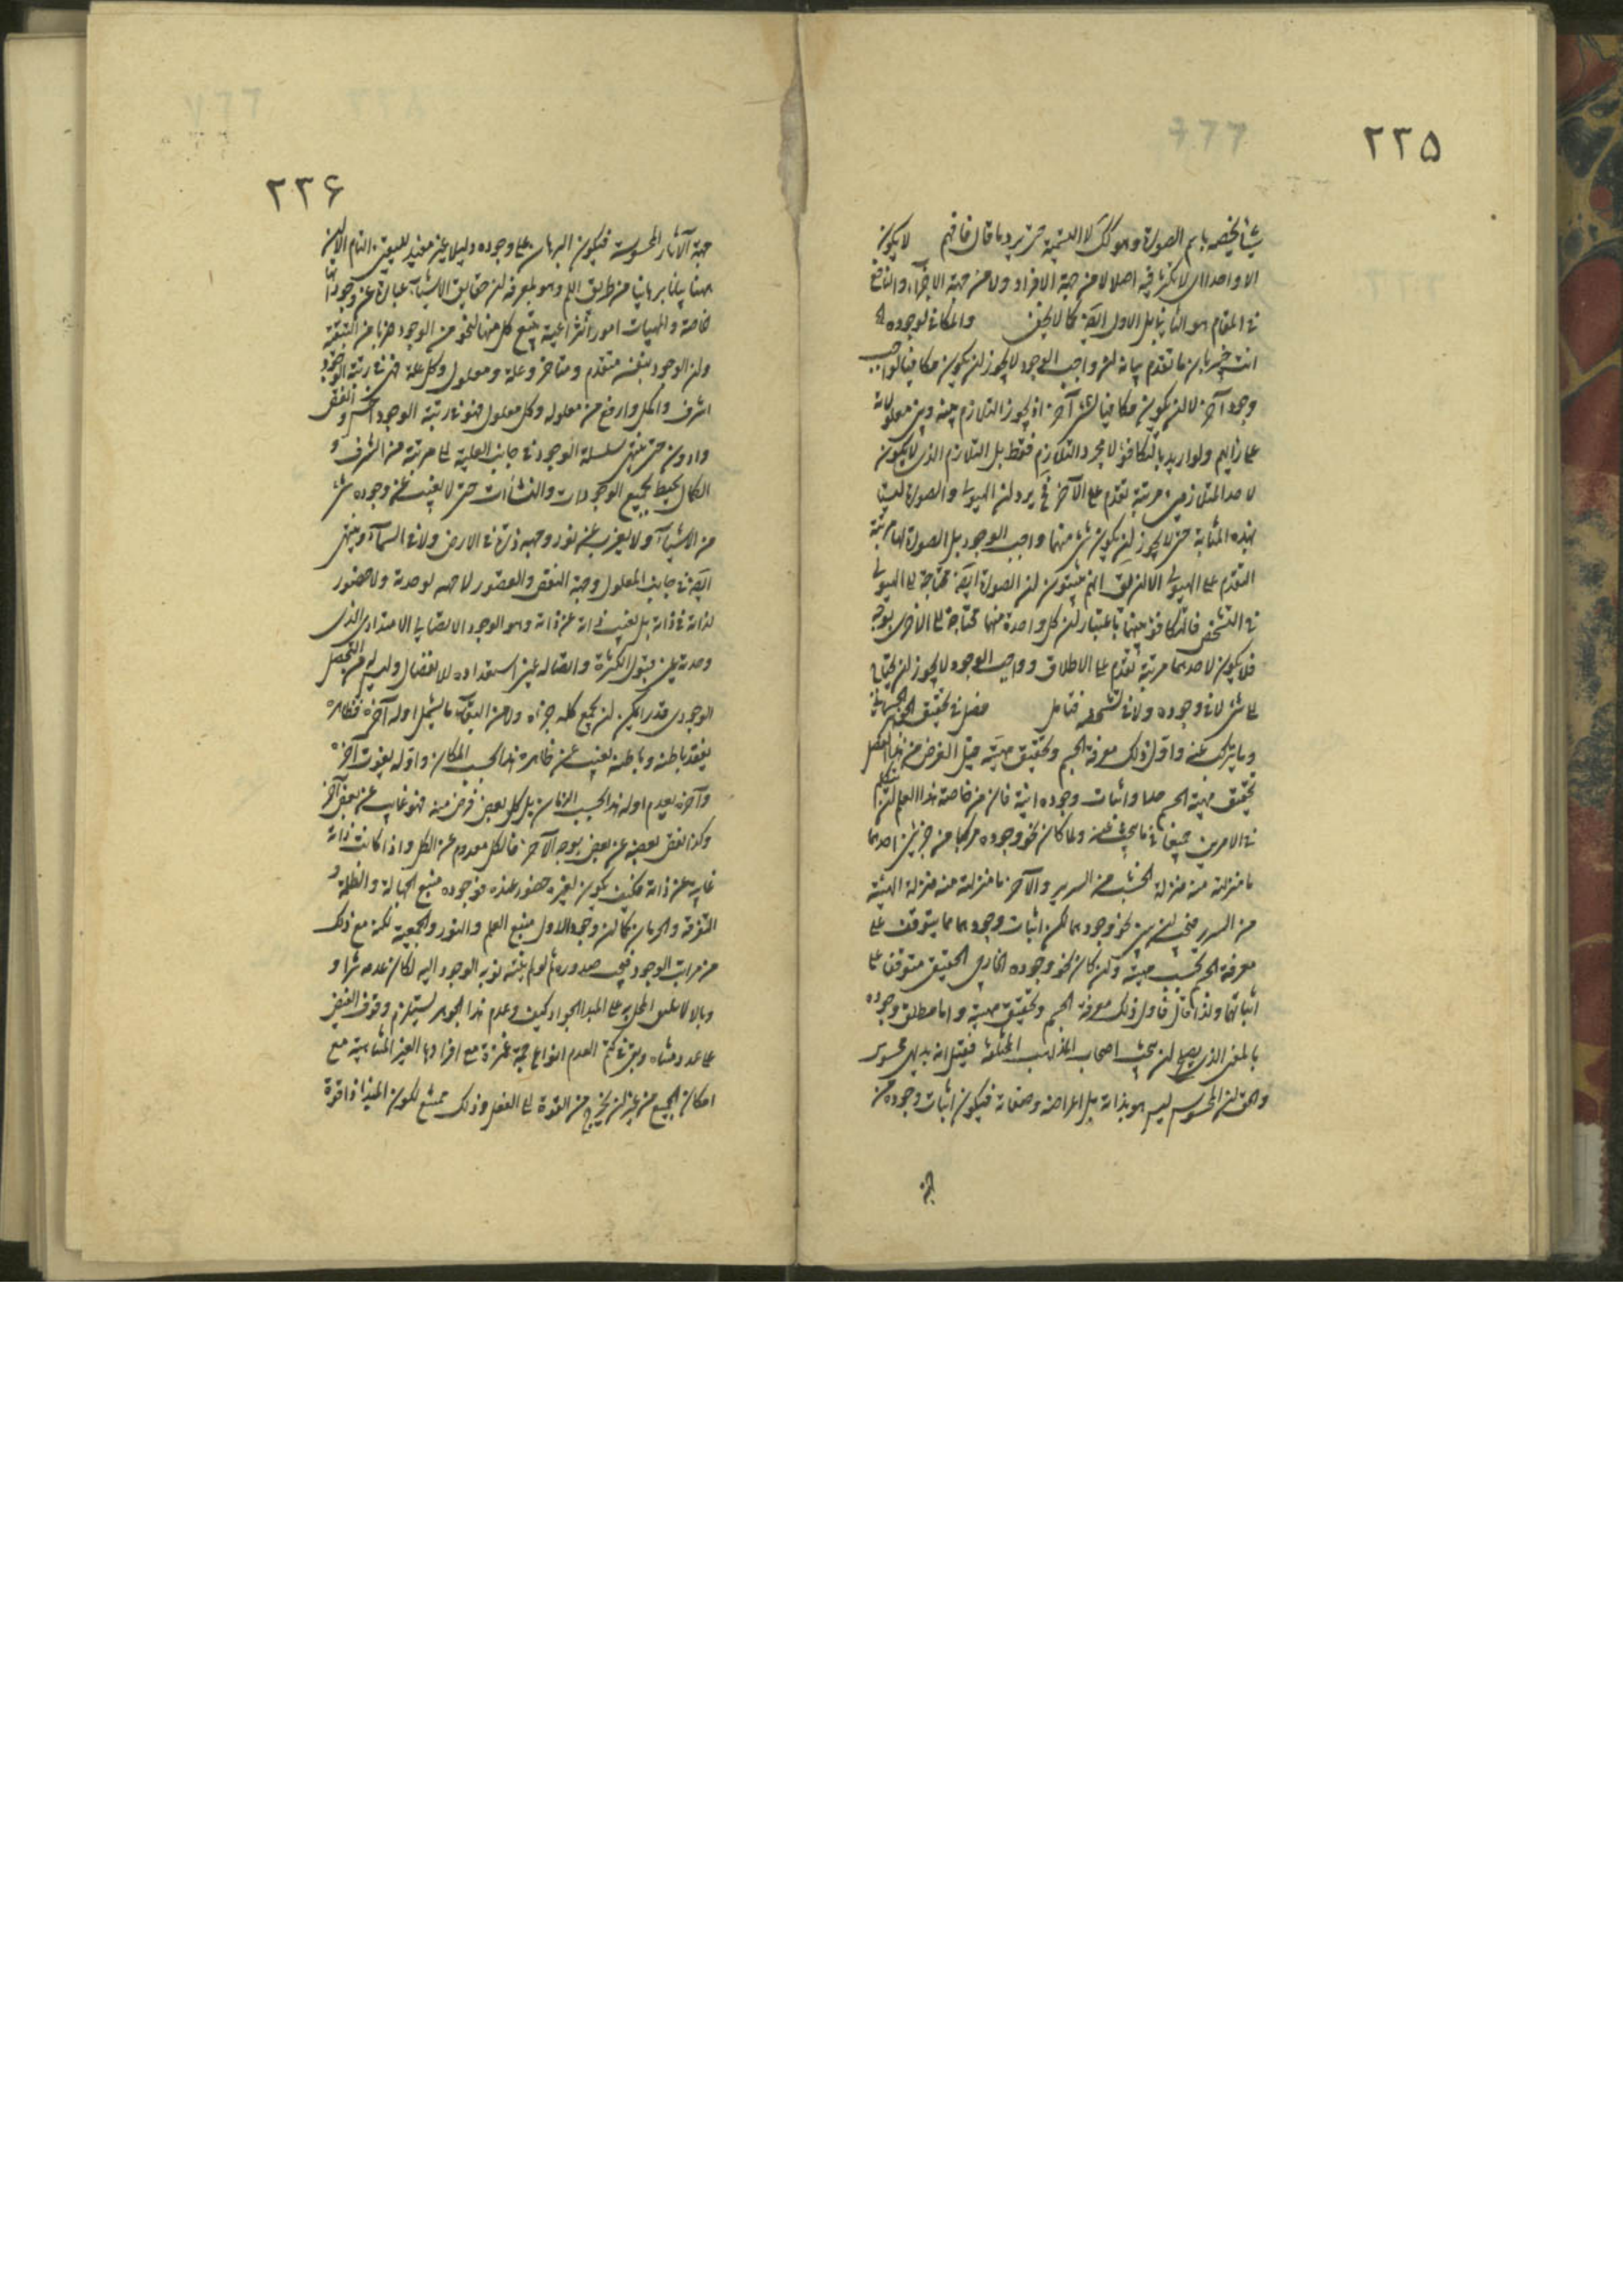 ٢٢٥
شيئا يخصه باسم الصورة وهو كك لا التسمية حتى يرد ما قال فافهم لا يكون
الا واحدا اى لا تكثر فيه اصلا لا من جهة الافراد ولا من جهة الاجزاء والنافع
فى المقام هو الثانى بل الاول ايضا كما لا يخفى والمكافى لوجوده
انت خبير بان ما تقدم بيانه ان واجب الوجود لا يجوز ان يكون مكافيا لواجب
وجود آخر لا ان يكون مكافيا لشئ آخر اذ يجوز التلازم بينه وبين معلولاته
على رايهم ولو اريد بالتكافؤ لا مجرد التلازم فقط بل التلازم الذى لا يكون
لاحد المتلازمين مرتبة تقدم على الآخر يرد ان الهيولى والصورة ليستا
بهذه المثابة حتى لا يجوز ان يكون شئ منهما واجب الوجود بل الصورة لها مرتبة
التقدم على الهيولى الا ان يق انهم يثبتون ان الصورة ايضا محتاجة الى الهيولى
فى التشخص فالتكافؤ بينهما باعتبار ان كل واحدة منهما محتاجة الى الاخرى بوجه
فلا يكون لاحدهما مرتبة تقدم على الاطلاق وواجب الوجود لا يجوز ان يحتاج
الى شئ لا فى وجوده ولا فى تشخصه فتامل فصل فى تحقيق الجوهر الجسمانى
وما يتركب عنه واول ذلك معرفة الجسم وتحقيق مهيته قيل الغرض من هذا الفصل
تحقيق مهية الجسم حدا واثبات وجوده انية فان من خاصة هذا العلم ان يتكلم
فى الامرين جميعا فى ما يبحث عنه ولما كان نحو وجوده مركبا من جزئين احدهما
ما منزلته منه منزلة الخشب من السرير والآخر ما منزلته منه منزلة الهيئة
من السرير فيجب ان يبين نحو وجودهما لكن اثبات وجودهما مما يتوقف على
معرفة الجسم بحسب مهيته وان كان نحو وجوده الخارجى الحقيقى متوقفا على
اثباتهما ولذا قال فاول ذلك معرفة الجسم وتحقيق مهيته واما مطلق وجوده
بالمعنى الذى يصلح لان يبحث اصحاب المذاهب المختلفة فقيل انه بديهى محسوس
والحق ان المحسوس ليس هو بذاته بل اعراضه وصفاته فيكون اثبات وجوده من
٢٢۶
جهة الآثار المحسوسة فيكون البرهان على وجوده دليلا غير مفيد لليقين التام الا ان
ههنا بيانا برهانيا من طريق اللم وهو بمعرفة ان حقايق الاشياء عبارة عن وجوداتها
خاصة والمهيات امور انتزاعية يتبع كل منها لنحو من الوجود ضربا من التبعية
وان الوجود بنفسه متقدم ومتاخر وعلة ومعلول وكل علة فهى فى رتبة الوجود
اشرف واكمل وارفع من معلوله وكل معلول فهو فى رتبة الوجود اخس وانقص
وادون حتى ينتهى سلسلة الوجود فى جانب العلية الى مرتبة من الشرف و
الكمال يحيط بجميع الوجودات والنشأت حتى لا يغيب عن وجوده شئ
من الاشياء ولا يعزب عن نور وجهه ذرة فى الارض ولا فى السماء وينتهى
ايضا فى جانب المعلول وجهة النقص والقصور لا وحدة ولا حضور
لذاته فى ذاته بل تغيب ذاته عن ذاته وهو الوجود الاتصالى الامتدادى الذى
وحدته عين قبول الكثرة واتصاله عين استعداده للانفصال وليس له من التحصل
الوجودى قدر ان يجمع كله جزؤه ولا من البقاء ما يشمل اوله آخره فظاهره
يفقد باطنه وباطنه يغيب عن ظاهره هذا بحسب المكان واوله يفوت آخره
وآخره يعدم اوله هذا بحسب الزمان بل كل بعض فرض منه فهو غايب عن بعض آخر
وكذا بعض بعضه عن بعض بوجه الآخر فالكل معدوم عن الكل واذا كانت ذاته
غايبة عن ذاته فكيف يكون لغيره حضور عنده فوجوده منبع الجهالة والظلمة و
التفرقة والحرمان كما ان وجود الاول منبع العلم والنور والجمعية لكنه مع ذلك
من مراتب الوجود فيجب صدوره لو لم ينته نوبة الوجود اليه لكان عدمه شرا و
وبالا لا يليق اهماله على المبدا الجواد كيف وعدم هذا الجوهر يستلزم وقوف الفيض
على عدد متناه وبقى فى كتم العدم انواع جمة غفيرة مع افرادها الغير المتناهية مع
امكان الجميع من غير ان يخرج من القوة الى الفعل وذلك ممتنع لكون المبدا